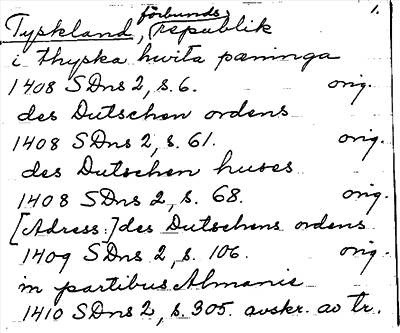 förbunds- 1.
Tyskland, republik
i thyska hwita pæninga
1408 SDns 2, s. 6. orig.
des Dutschen ordens
1408 SDns 2, s. 61. orig.
des Dutschen huses
1408 SDns 2, s. 68. orig.
[Adress:] des Dutschens ordens
1409 SDns 2, s. 106. orig.
in partibus Almanie
1410 SDns 2, s. 305. avskr. av tr.